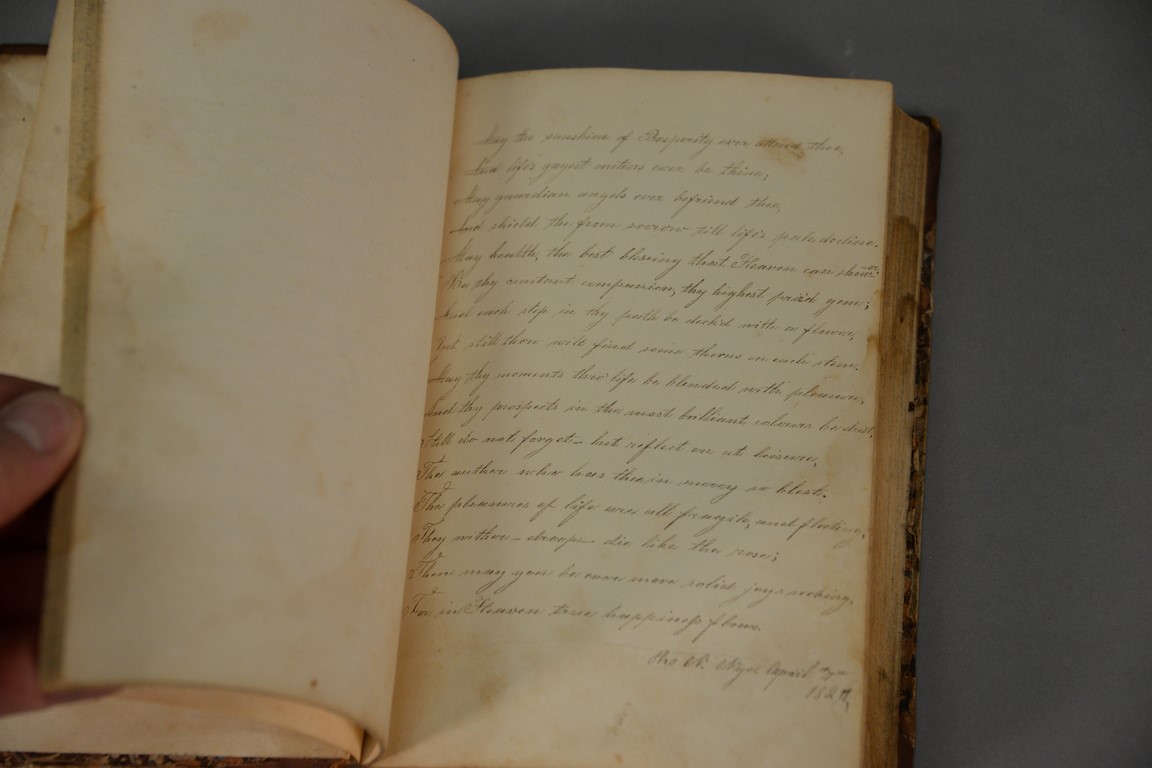 May the sunshine of Prosperity ever attend thee,
And life's gayest meteors ever be thine;
May guardian angels ever befriend thee,
And shield the from sorrow till life's path decline.
May health, the best blessing that Heaven can shower
Be thy constant companion, thy highest gem;
And each step in thy path be deck'd with a flower,
Yet still thou wilt find some thorns on each stem.
May thy moments thro' life be blended with pleasure,
And thy prospects in the most brilliant colours be
Still do not forget – but reflect on at leisure,
The author who has thee in mercy so blest.
The pleasures of life are all fragile, and fleeting,
They wither – droop – die like the rose;
Then may you be ever more solid joys seeking,
For in Heaven true happiness flows.
April